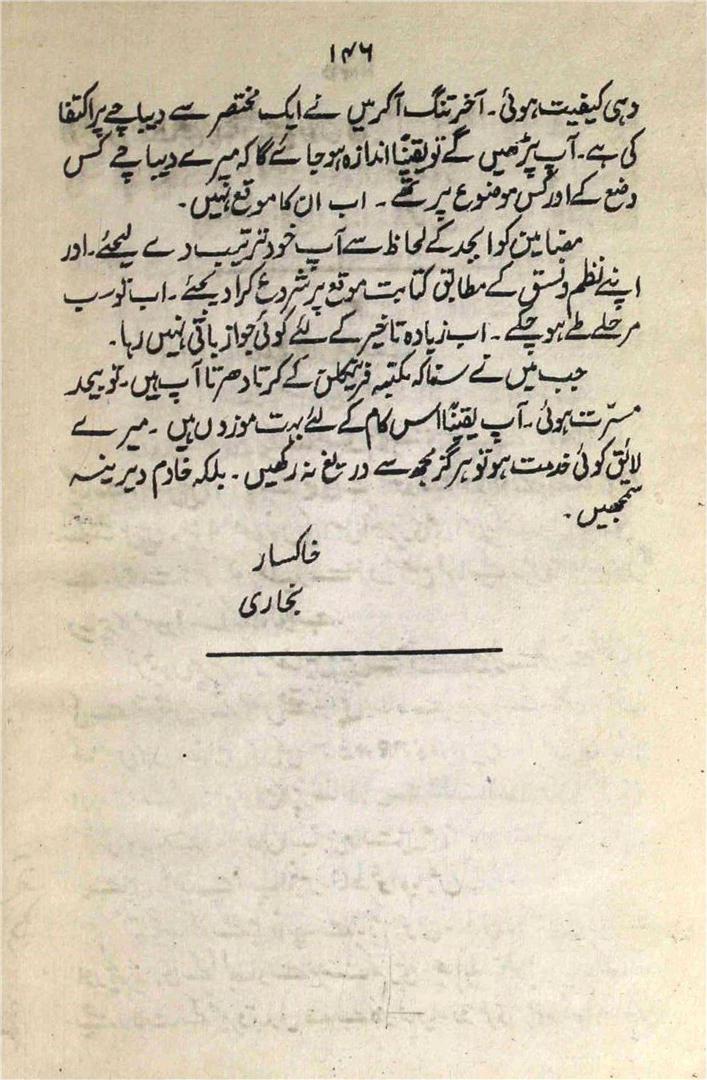 ۱۴۶
وہی کیفیت ہوئی۔ آخر تنگ آکر میں نے ایک مختصر سے دیباچے پر اکتفا
کی ہے۔ آپ پڑھیں گے تو یقیناً اندازہ ہو جائے گا کہ میرے دیباچے کس
وضع کے اور کس موضوع پر تھے۔ اب ان کا موقع نہیں۔
مضامین کو ابجد کے لحاظ سے آپ خود ترتیب دے لیجئے۔ اور
اپنے نظم و نسق کے مطابق کتابت موقع پر شروع کرا دیجئے۔ اب تو سب
مرحلے طے ہو چکے۔ اب زیادہ تاخیر کے لئے کوئی جواز باقی نہیں رہا۔
جب میں نے سنا کہ مکتبہ فرینکلن کے کرتا دھرتا آپ ہیں۔ تو بیحد
مسرّت ہوئی۔ آپ یقیناً اس کام کے لئے بہت موزوں ہیں۔ میرے
لائق کوئی خدمت ہو تو ہرگز مجھ سے دریغ نہ رکھیں۔ بلکہ خادم دیرینہ
سمجھیں۔
خاکسار
بخاری